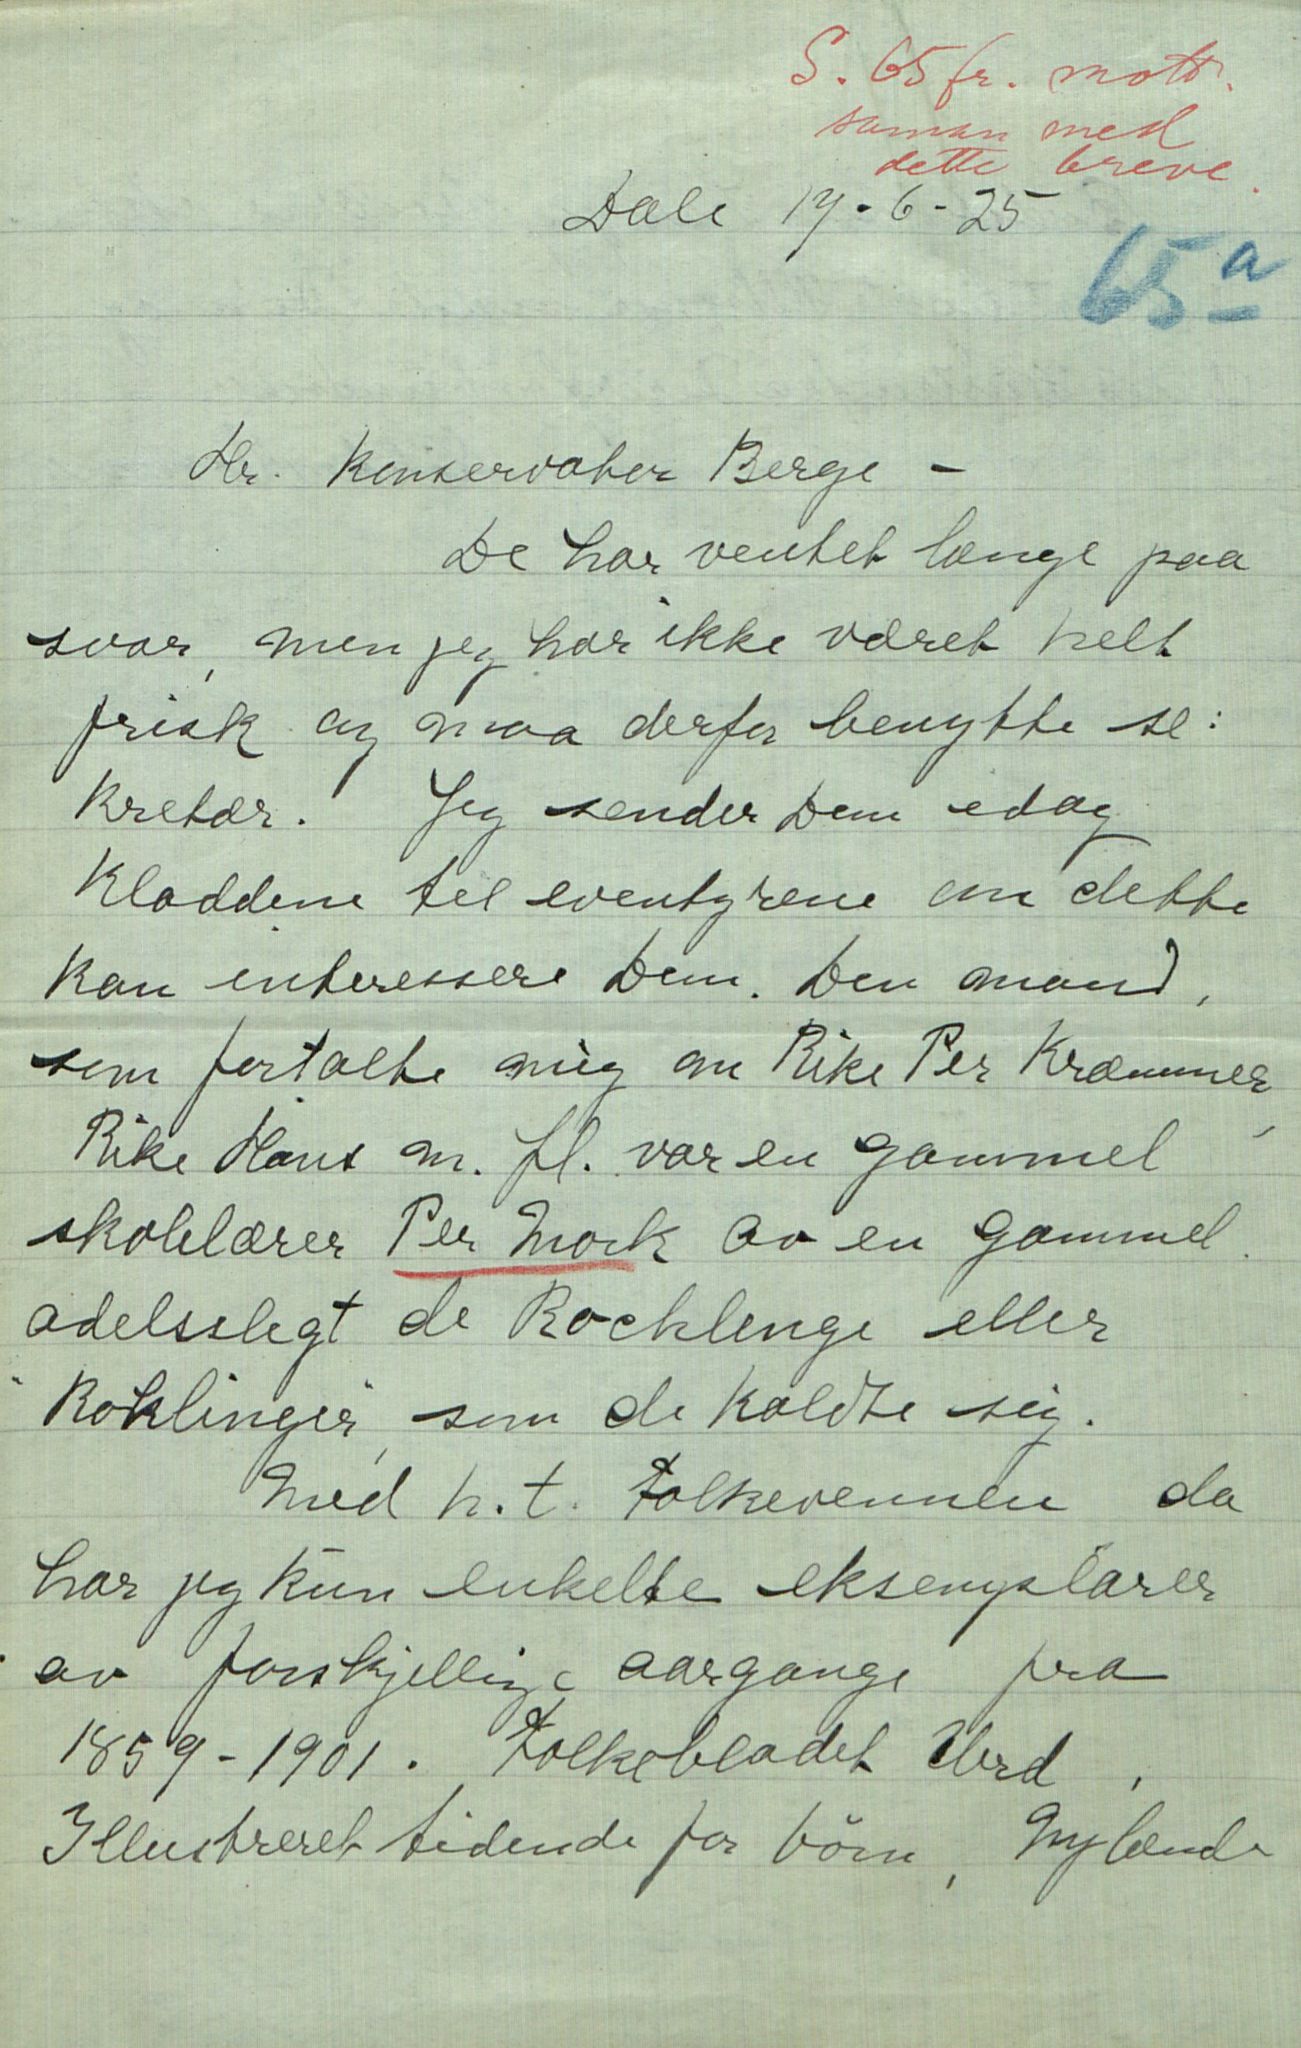 S. 65 fr. mott.
saman med
dette breve.
Dale 17-6-25
65a
Hr. Konservator Berge -
De har ventet længe paa
svar, men jeg har ikke været helt
frisk og maa derfor benytte se:
kretær. Jeg sender Dem idag
Kladdene til eventyrene om dette
kan interessere Dem. Den mand,
som fortalte mig om Rike Per Kræmmer,
Rike Hans m. fl. var en gammel
skolelærer Per Mork av en gammel
adelsslegt de Rocklenge eller
"Roklinger", som de kaldte sig.
Med h.t. Folkevennen da
har jeg kun enkelte eksemplarer
av forskjellige aargange fra
1859-1901. Folkebladet Urd,
Illustreret tidende for börn, Nylænde